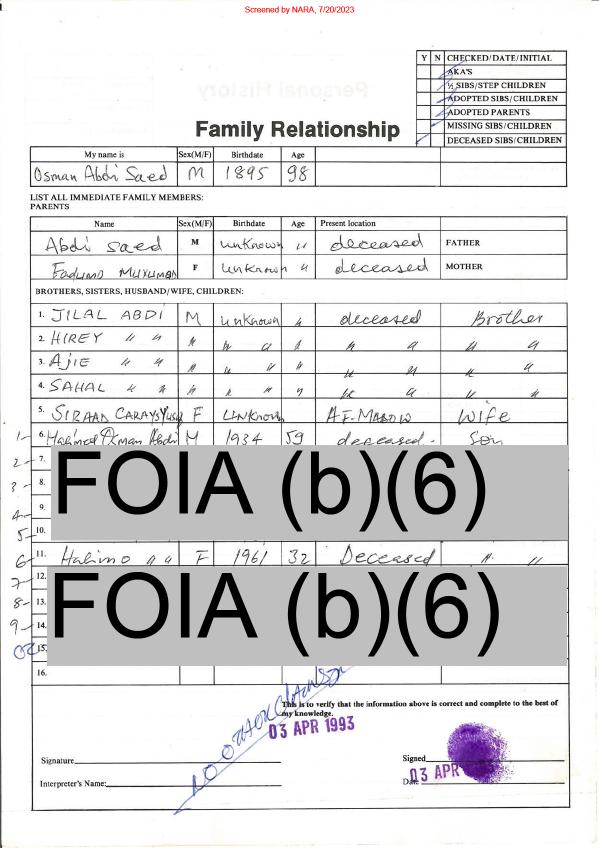 Screened by NARA, 7/20/2023
Y N CHECKED/DATE/INITIAL
AKA'S
½ SIBS/STEP CHILDREN
ADOPTED SIBS/CHILDREN
ADOPTED PARENTS
MISSING SIBS/CHILDREN
DECEASED SIBS/CHILDREN
Personal History
Family Relationship
My name is Sex(M/F) Birthdate Age
Osman Abdi Saed M 1895 98
LIST ALL IMMEDIATE FAMILY MEMBERS:
PARENTS
Name Sex(M/F) Birthdate Age Present location
Abdi Saed M unknown " deceased FATHER
Fadumo MUXUMAN F Unknown " deceased MOTHER
BROTHERS, SISTERS, HUSBAND/WIFE, CHILDREN:
1. JILAL ABDI M unknown " deceased Brother
2. HIREY " " " " " " " " " "
3. AJIE " " " " " " " " " "
4. SAHAL " " " " " " " " " "
5. SIRAAD F Unknown AF-MADOW Wife
1- 6. Osman Abdi M 1934 59 deceased Son
2- 7.
3- 8.
FOIA (b)(6)
4- 9.
5- 10.
6- 11. Halimo " " F 1961 32 Deceased " "
7- 12.
8- 13.
FOIA (b)(6)
9- 14.
15.
16.
NO OTHER
This is to verify that the information above is correct and complete to the best of
my knowledge.
03 APR 1993
Signature Signed
03 APR
Interpreter's Name: Date